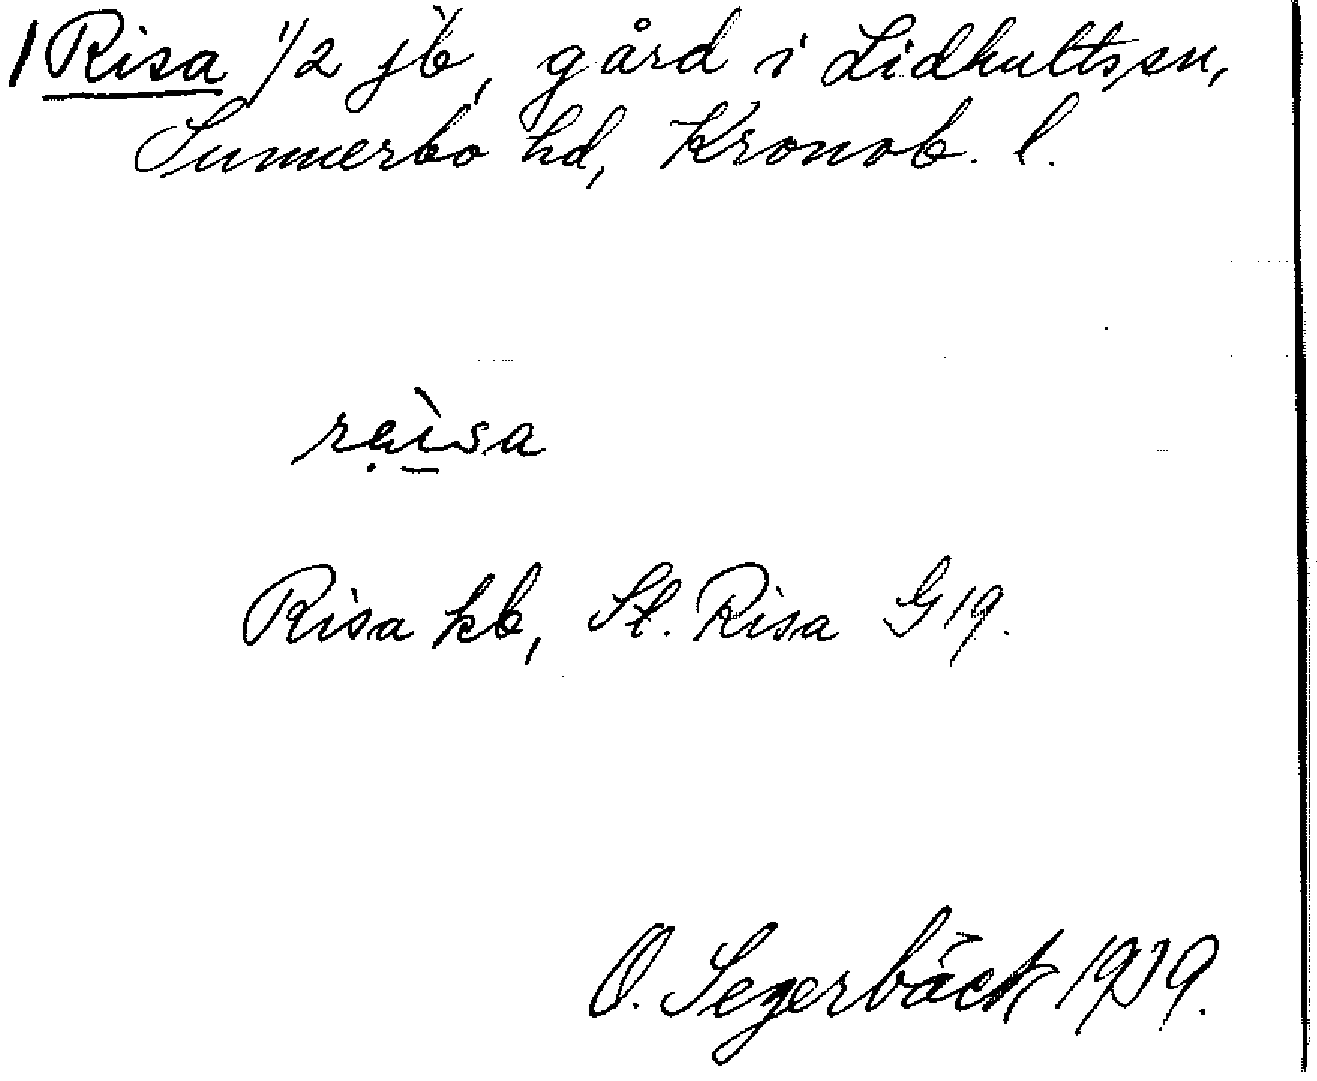 Risa 1/2 jb, gård i Lidhults sn,
Sunnerbo hd, Kronob. l.
rai̠̇sa
Risa kb, St. Risa G 19.
O. Segerbäck 1939.